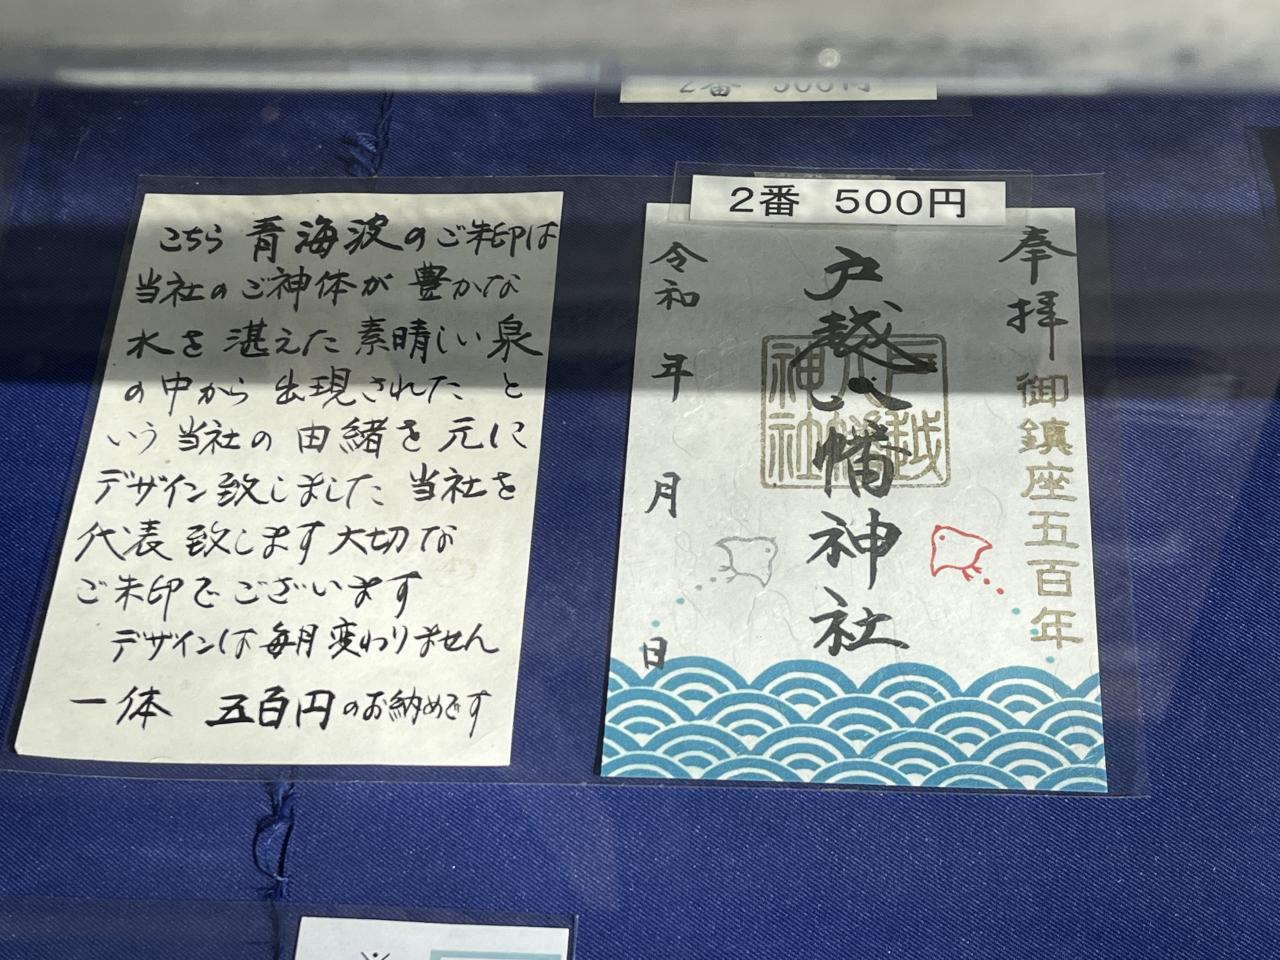 2番 500円
こちら 青海波のご朱印は
当社のご神体が 豊かな
水を 湛えた 素晴しい 泉
の中から 出現された と
いう 当社の 由緒を 元に
デザイン致しました 当社を
代表 致します 大切な
ご朱印でございます
デザインは毎月変わりません
一体 五百円のお納めです
2番 500円
奉拝
御鎮座五百年
戸越八幡神社
戸越八幡神社
令和 年 月 日
※